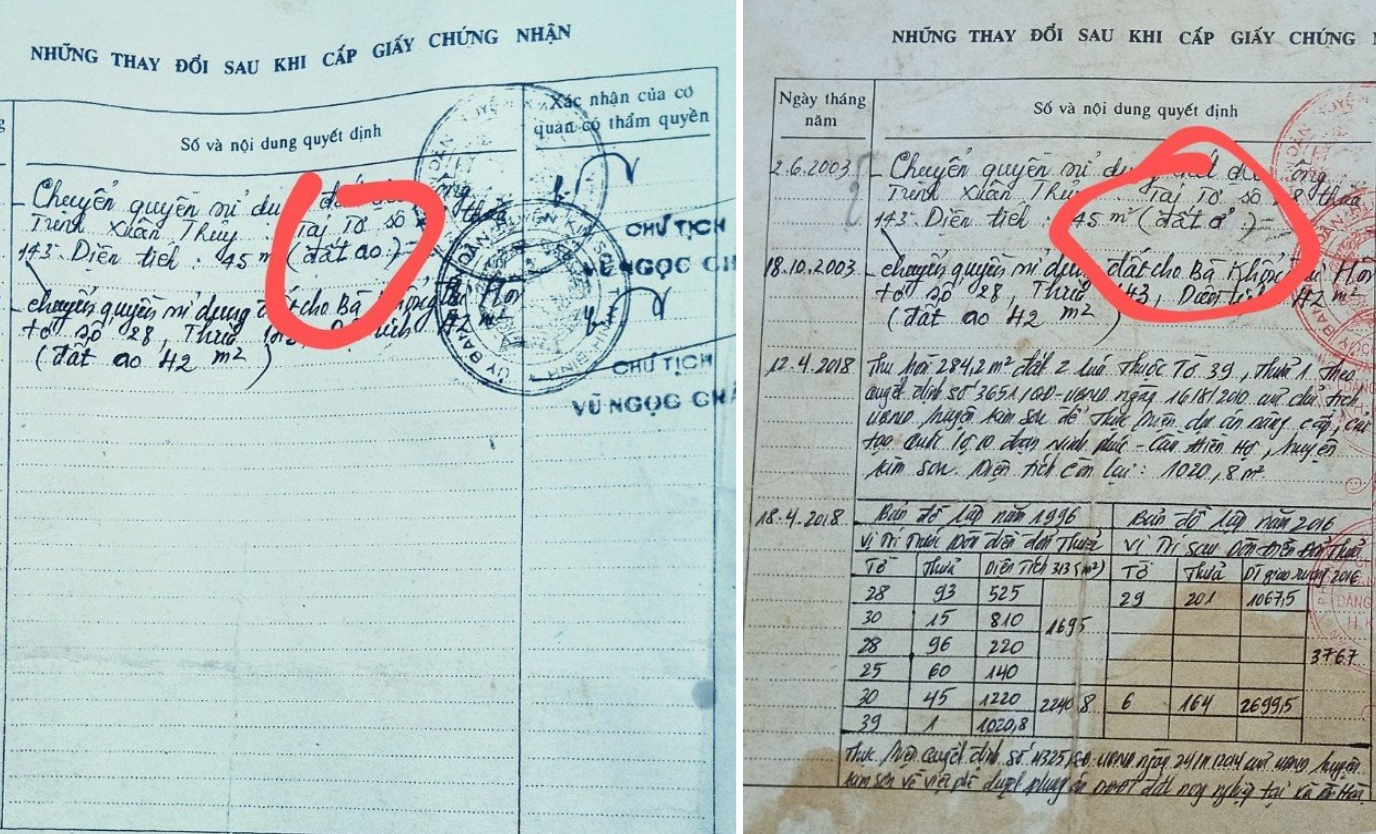 NHỮNG THAY ĐỔI SAU KHI CẤP GIẤY CHỨNG NHẬN
Số và nội dung quyết định
Xác nhận của cơ
quan có thẩm quyền
- Chuyển quyền sử dụng đất
Trịnh Xuân Thuỷ. Tại Tờ số
143. Diện tích: 45 m (đất ao)-
- chuyển quyền sử dụng đất cho Bà
tờ số 28, Thửa
42 m²
(đất ao 42 m²)
CHỦ TỊCH
VŨ NGỌC
CHỦ TỊCH
VŨ NGỌC
NHỮNG THAY ĐỔI SAU KHI CẤP GIẤY CHỨNG
Ngày tháng
năm
Số và nội dung quyết định
2.6.2003
- Chuyển quyền sử dụng ông
Trịnh Xuân Thuỷ. Tại Tờ số 28 thửa
143. Diện tích: 45 m² (đất ở)-
18.10.2003
- chuyển quyền sử dụng đất cho Bà
tờ số 28, Thửa 143, Diện tích 42 m²
(đất ao 42 m²)
12.4.2018
Thu hồi 284,2 m² đất 2 lúa thuộc Tờ 39, thửa 1 theo
quyết định số 3651/QĐ-UBND ngày của chủ tịch
UBND huyện Kim Sơn để thực hiện dự án nâng cấp, cải
tạo quốc lộ 10 đoạn Ninh Phúc - Cầu Điền Hộ, huyện
Kim Sơn. Diện tích còn lại: 1020,8 m².
18.4.2018
Bản đồ lập năm 1996
Bản đồ lập năm 2016
Vị trí trước Dồn điền đổi Thửa
Vị trí sau Dồn điền đổi Thửa
Tờ Thửa Diện Tích 313 (m²) Tờ Thửa DT giao ruộng 2016
28 93 525 29 201 1067,5
30 15 810 1695
28 96 220 3767
25 60 140
30 45 1220 2240 8 6 164 2699,5
39 1 1020,8
Thực hiện quyết định số UBND ngày của UBND huyện
Kim Sơn về việc phê duyệt phương án đất nông nghiệp tại xã